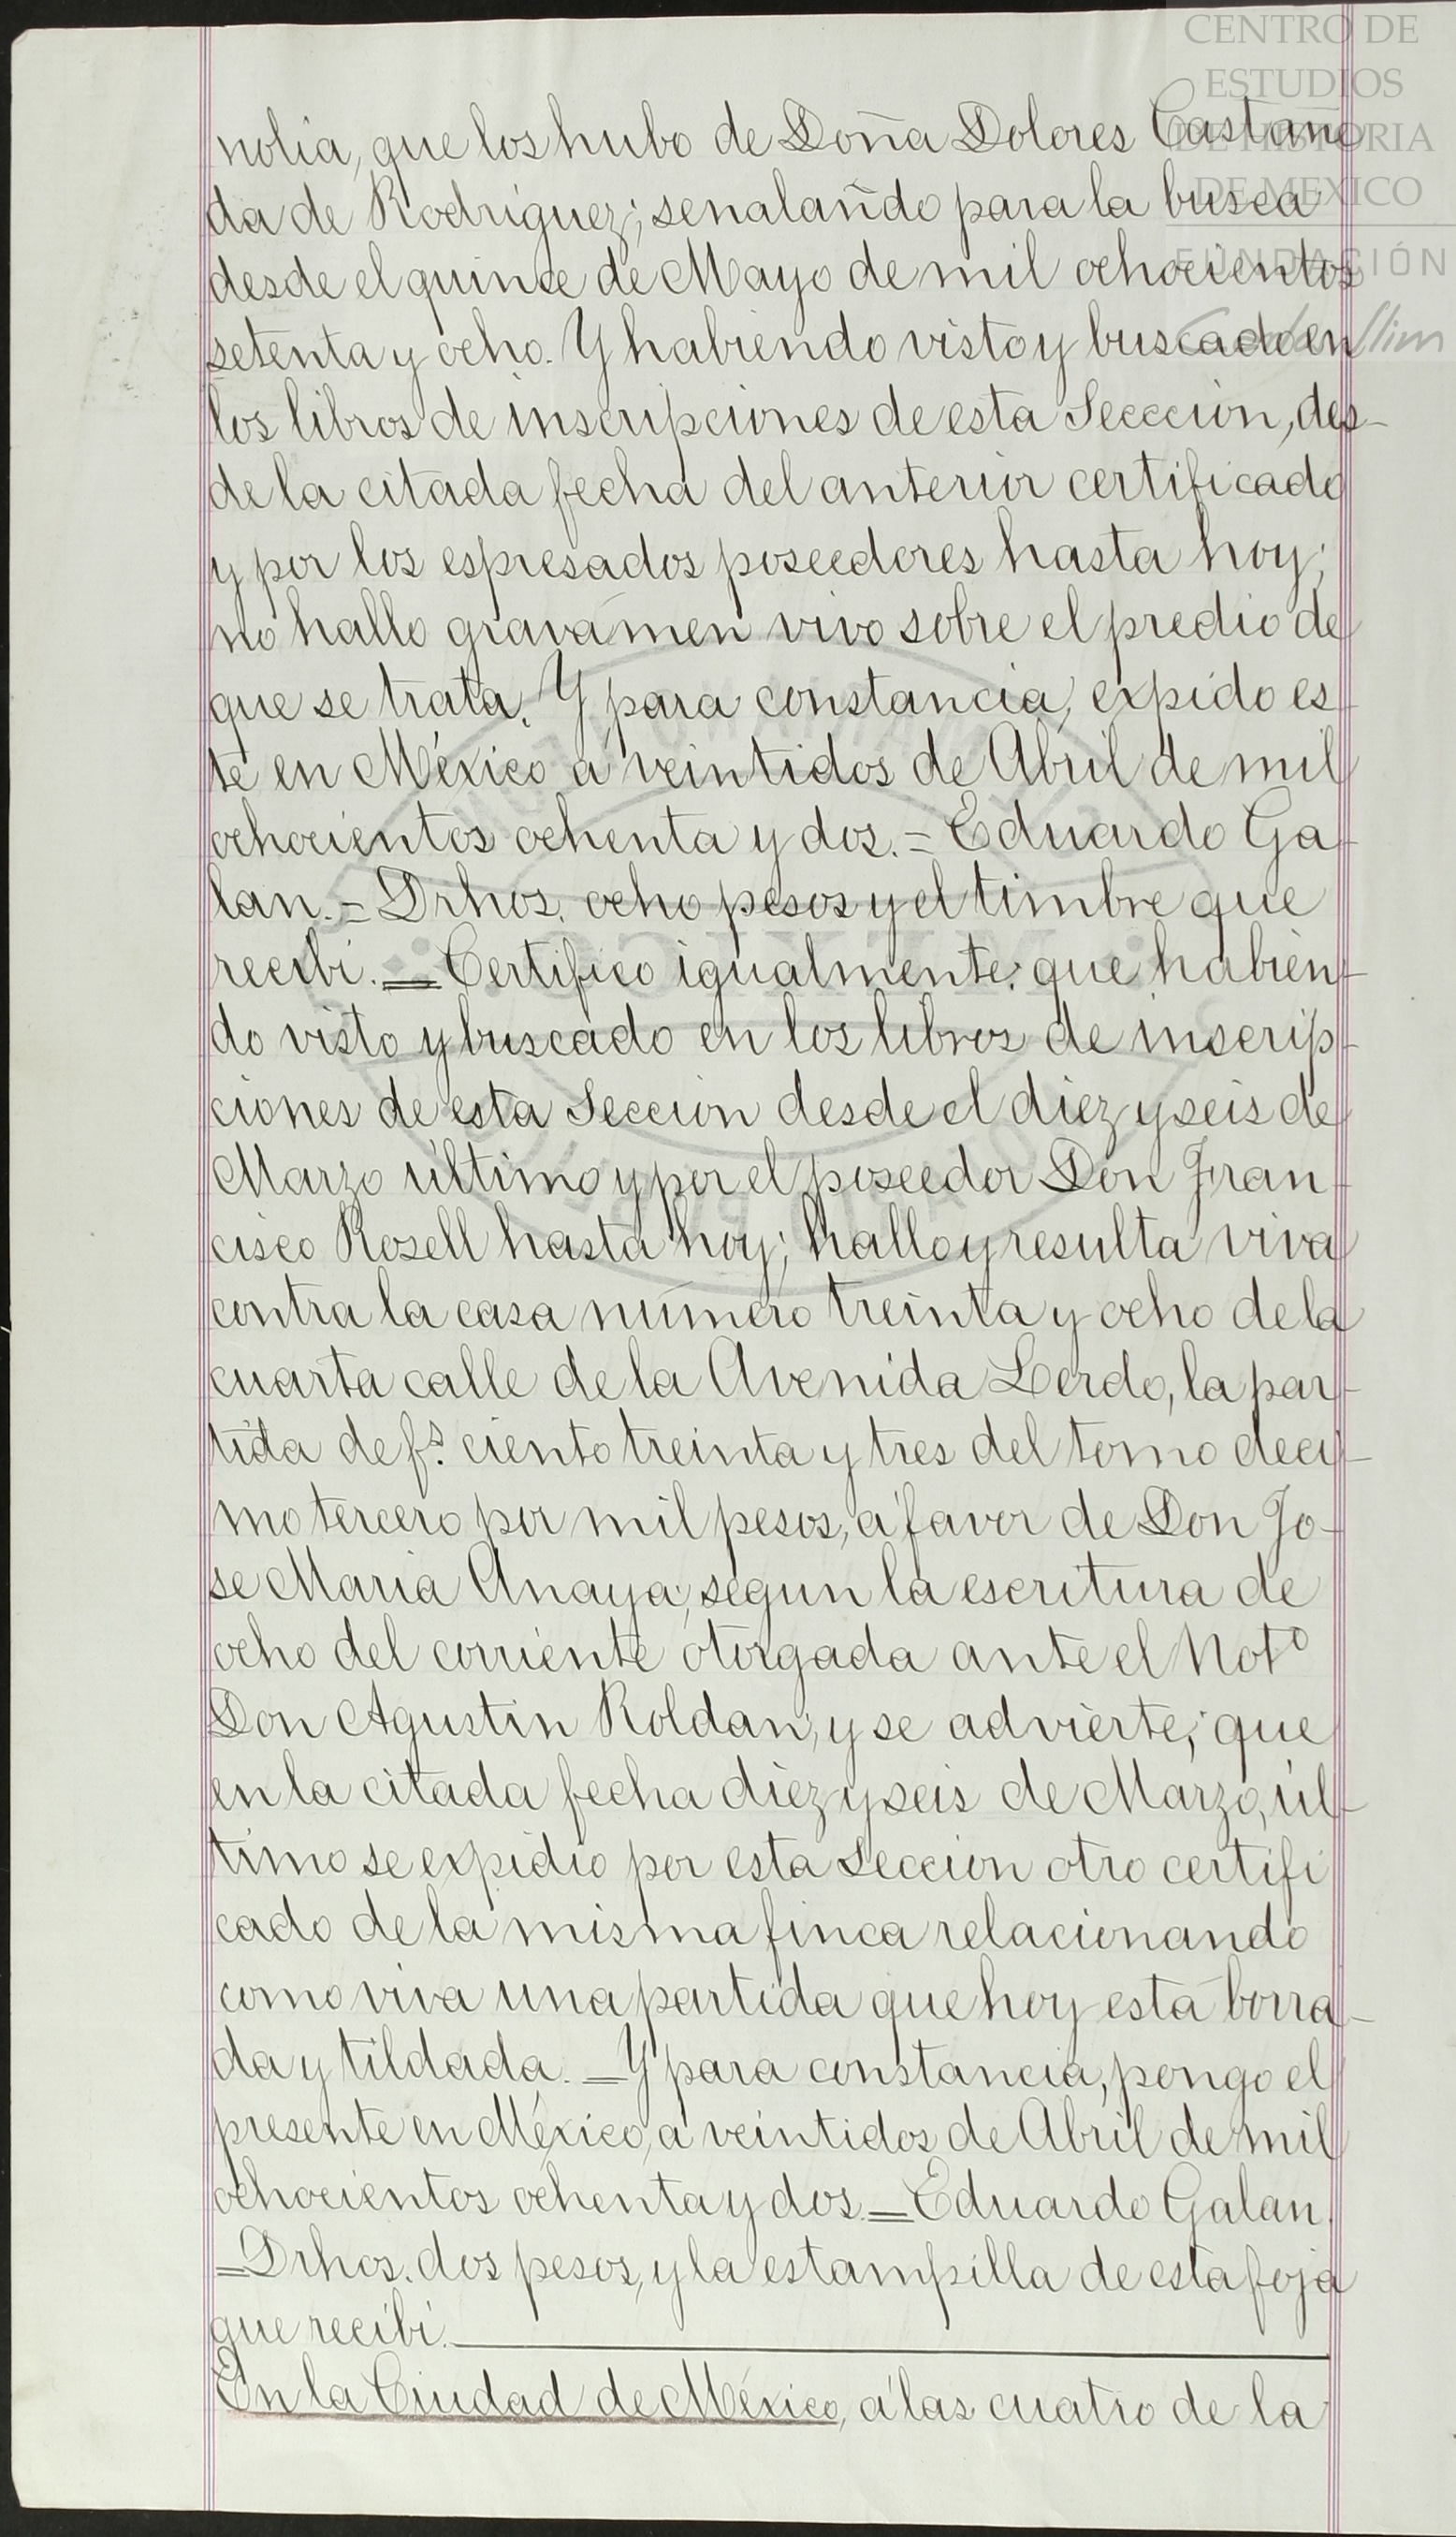 CENTRO DE
ESTUDIOS
DE HISTORIA
DE MEXICO
FUNDACIÓN
Carlos Slim
nolia, que los hubo de Doña Dolores Castañe
da de Rodriguez; senalando para la busca
desde el quince de Mayo de mil ochocientos
setenta y ocho. Y habiendo visto y buscado en
los libros de inscripciones de esta Seccción, des-
de la citada fecha del anterior certificado
y por los espresados poseedores hasta hoy;
no hallo gravámen vivo sobre el predio de
que se trata. Y para constancia, expido es
te en México á veintidos de Abril de mil
ochocientos ochenta y dos. = Eduardo Ga
lan. = Drhos. ocho pesos y el timbre que
recibi. = Certifico igualmente: que habien-
do visto y buscado en los libros de inscrip-
ciones de esta Seccion desde el diez y seis de
Marzo último y por el poseedor Don Fran-
cisco Rosell hasta hoy; hallo y resulta viva
contra la casa número treinta y ocho de la
cuarta calle de la Avenida Lerdo, la par-
tida de fs. ciento treinta y tres del tomo deci-
mo tercero por mil pesos, á favor de Don Jo-
se Maria Anaya; segun la escritura de
ocho del corriente otorgada ante el Noto
Don Agustin Roldan; y se advierte; que
en la citada fecha diez y seis de Marzo, úl-
timo se expidió por esta Seccion otro certifi
cado de la misma finca relacionando
como viva una partida que hoy está borra-
da y tildada. = Y para constancia, pongo el
presente en México, á veintidos de Abril de mil
ochocientos ochenta y dos. = Eduardo Galan.
= Drhos. dos pesos, y la estampilla de esta foja
que recibí.
En la Ciudad de México, á las cuatro de la